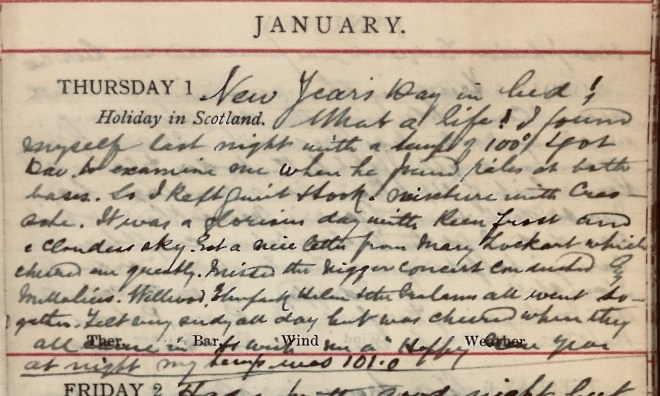 JANUARY.
THURSDAY 1 New Year's Day in bed!
Holiday in Scotland. What a life! I found
myself last night with a temp of 100° & got
Dav. to examine me when he found rales at both
bases. So I kept quiet & took mixture with Creo-
sote. It was a glorious day with keen frost and
a cloudless sky. Got a nice letter from Mary Lockart which
cheered me greatly. Missed the nigger concert conducted by
Millwood, Helen & the all went to-
gether. Felt very seedy all day but was cheered when they
all came in to wish me a "Happy New Year
Ther. Bar. Wind Weather
at night my temp was 101.0
FRIDAY 2 Had a good night but